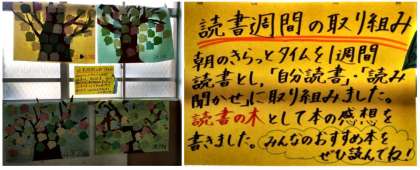 読書週間の取り組み
朝のきらっとタイムを1週間
読書とし、「自分読書」・「読み
聞かせ」に取り組みました。
読書の木として本の感想を
書きました。
みんなのおすすめ本を
ぜひ読んでね!